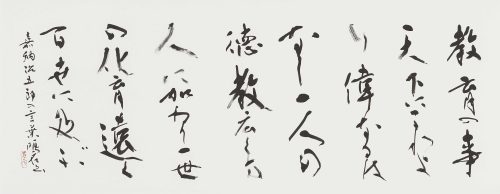 教育の事
天下にこれよ
り偉なるは
なし一人の
徳教広く万
人に加わり一世
の化育遠く
百世に及ぶ
嘉納治五郎の言葉